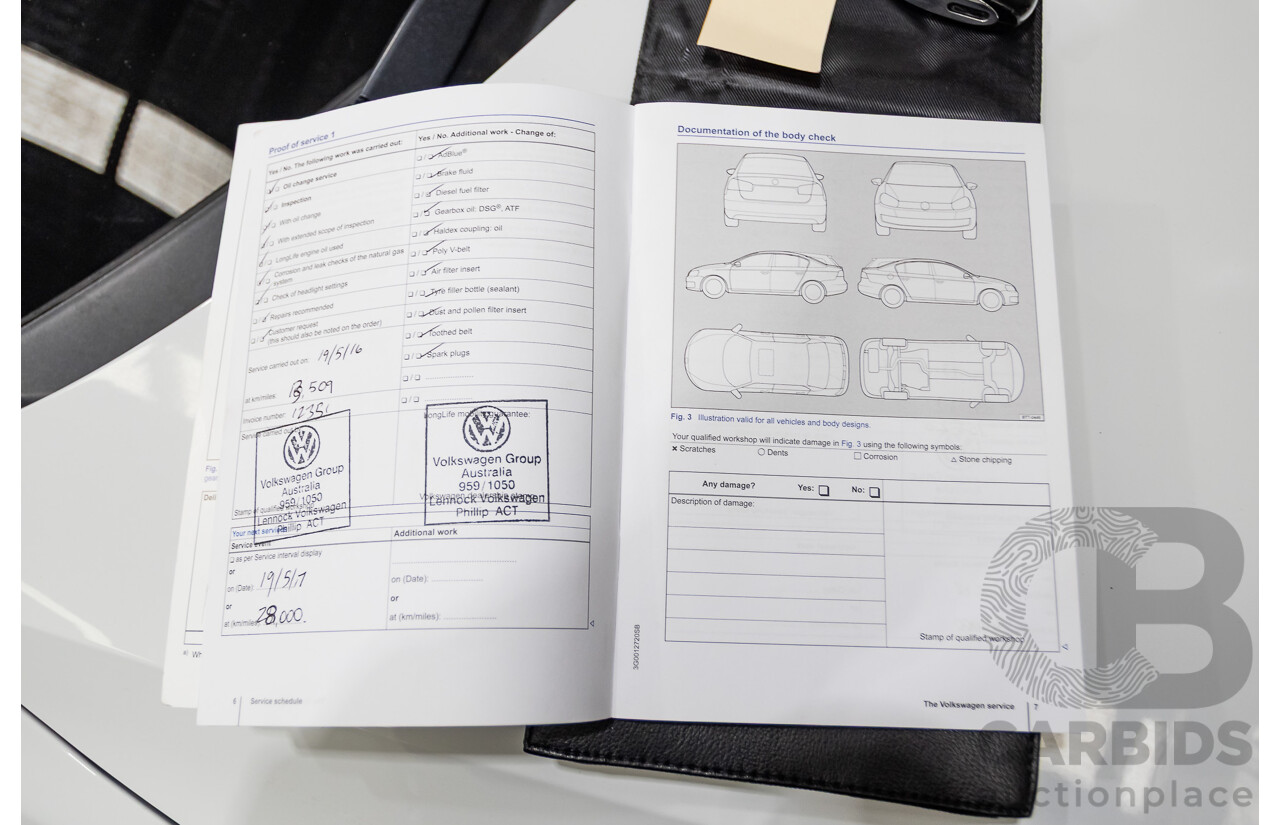 Proof of service 1
Yes / No. The following work was carried out:
Oil change service
Inspection
With oil change
With extended scope of inspection
LongLife engine oil used
Corrosion and leak checks of the natural gas
system
Check of headlight settings
Repairs recommended
Customer request
(this should also be noted on the order)
Service carried out on: 19/5/16
at km/miles: 13,509
Invoice number:
Service carried out
Volkswagen Group
Australia
959/1050
Lennock Volkswagen
Phillip ACT
Stamp of qualified
Yes / No. Additional work - Change of:
AdBlue®
Brake fluid
Diesel fuel filter
Gearbox oil: DSG®, ATF
Haldex coupling: oil
Poly V-belt
Air filter insert
Tyre filler bottle (sealant)
Dust and pollen filter insert
Toothed belt
Spark plugs
LongLife guarantee:
Volkswagen Group
Australia
959/1050
Lennock Volkswagen
Phillip ACT
Your next service
Service event
as per Service interval display
or
on (Date): 19/5/17
or
at (km/miles): 28,000.
Additional work
on (Date):
or
at (km/miles):
6 Service schedule
Documentation of the body check
Fig. 3 Illustration valid for all vehicles and body designs.
Your qualified workshop will indicate damage in Fig. 3 using the following symbols:
× Scratches ○ Dents □ Corrosion △ Stone chipping
Any damage? Yes: No:
Description of damage:
Stamp of qualified workshop
3G0012720SB
The Volkswagen service 7
CB
CARBIDS
ctionplace